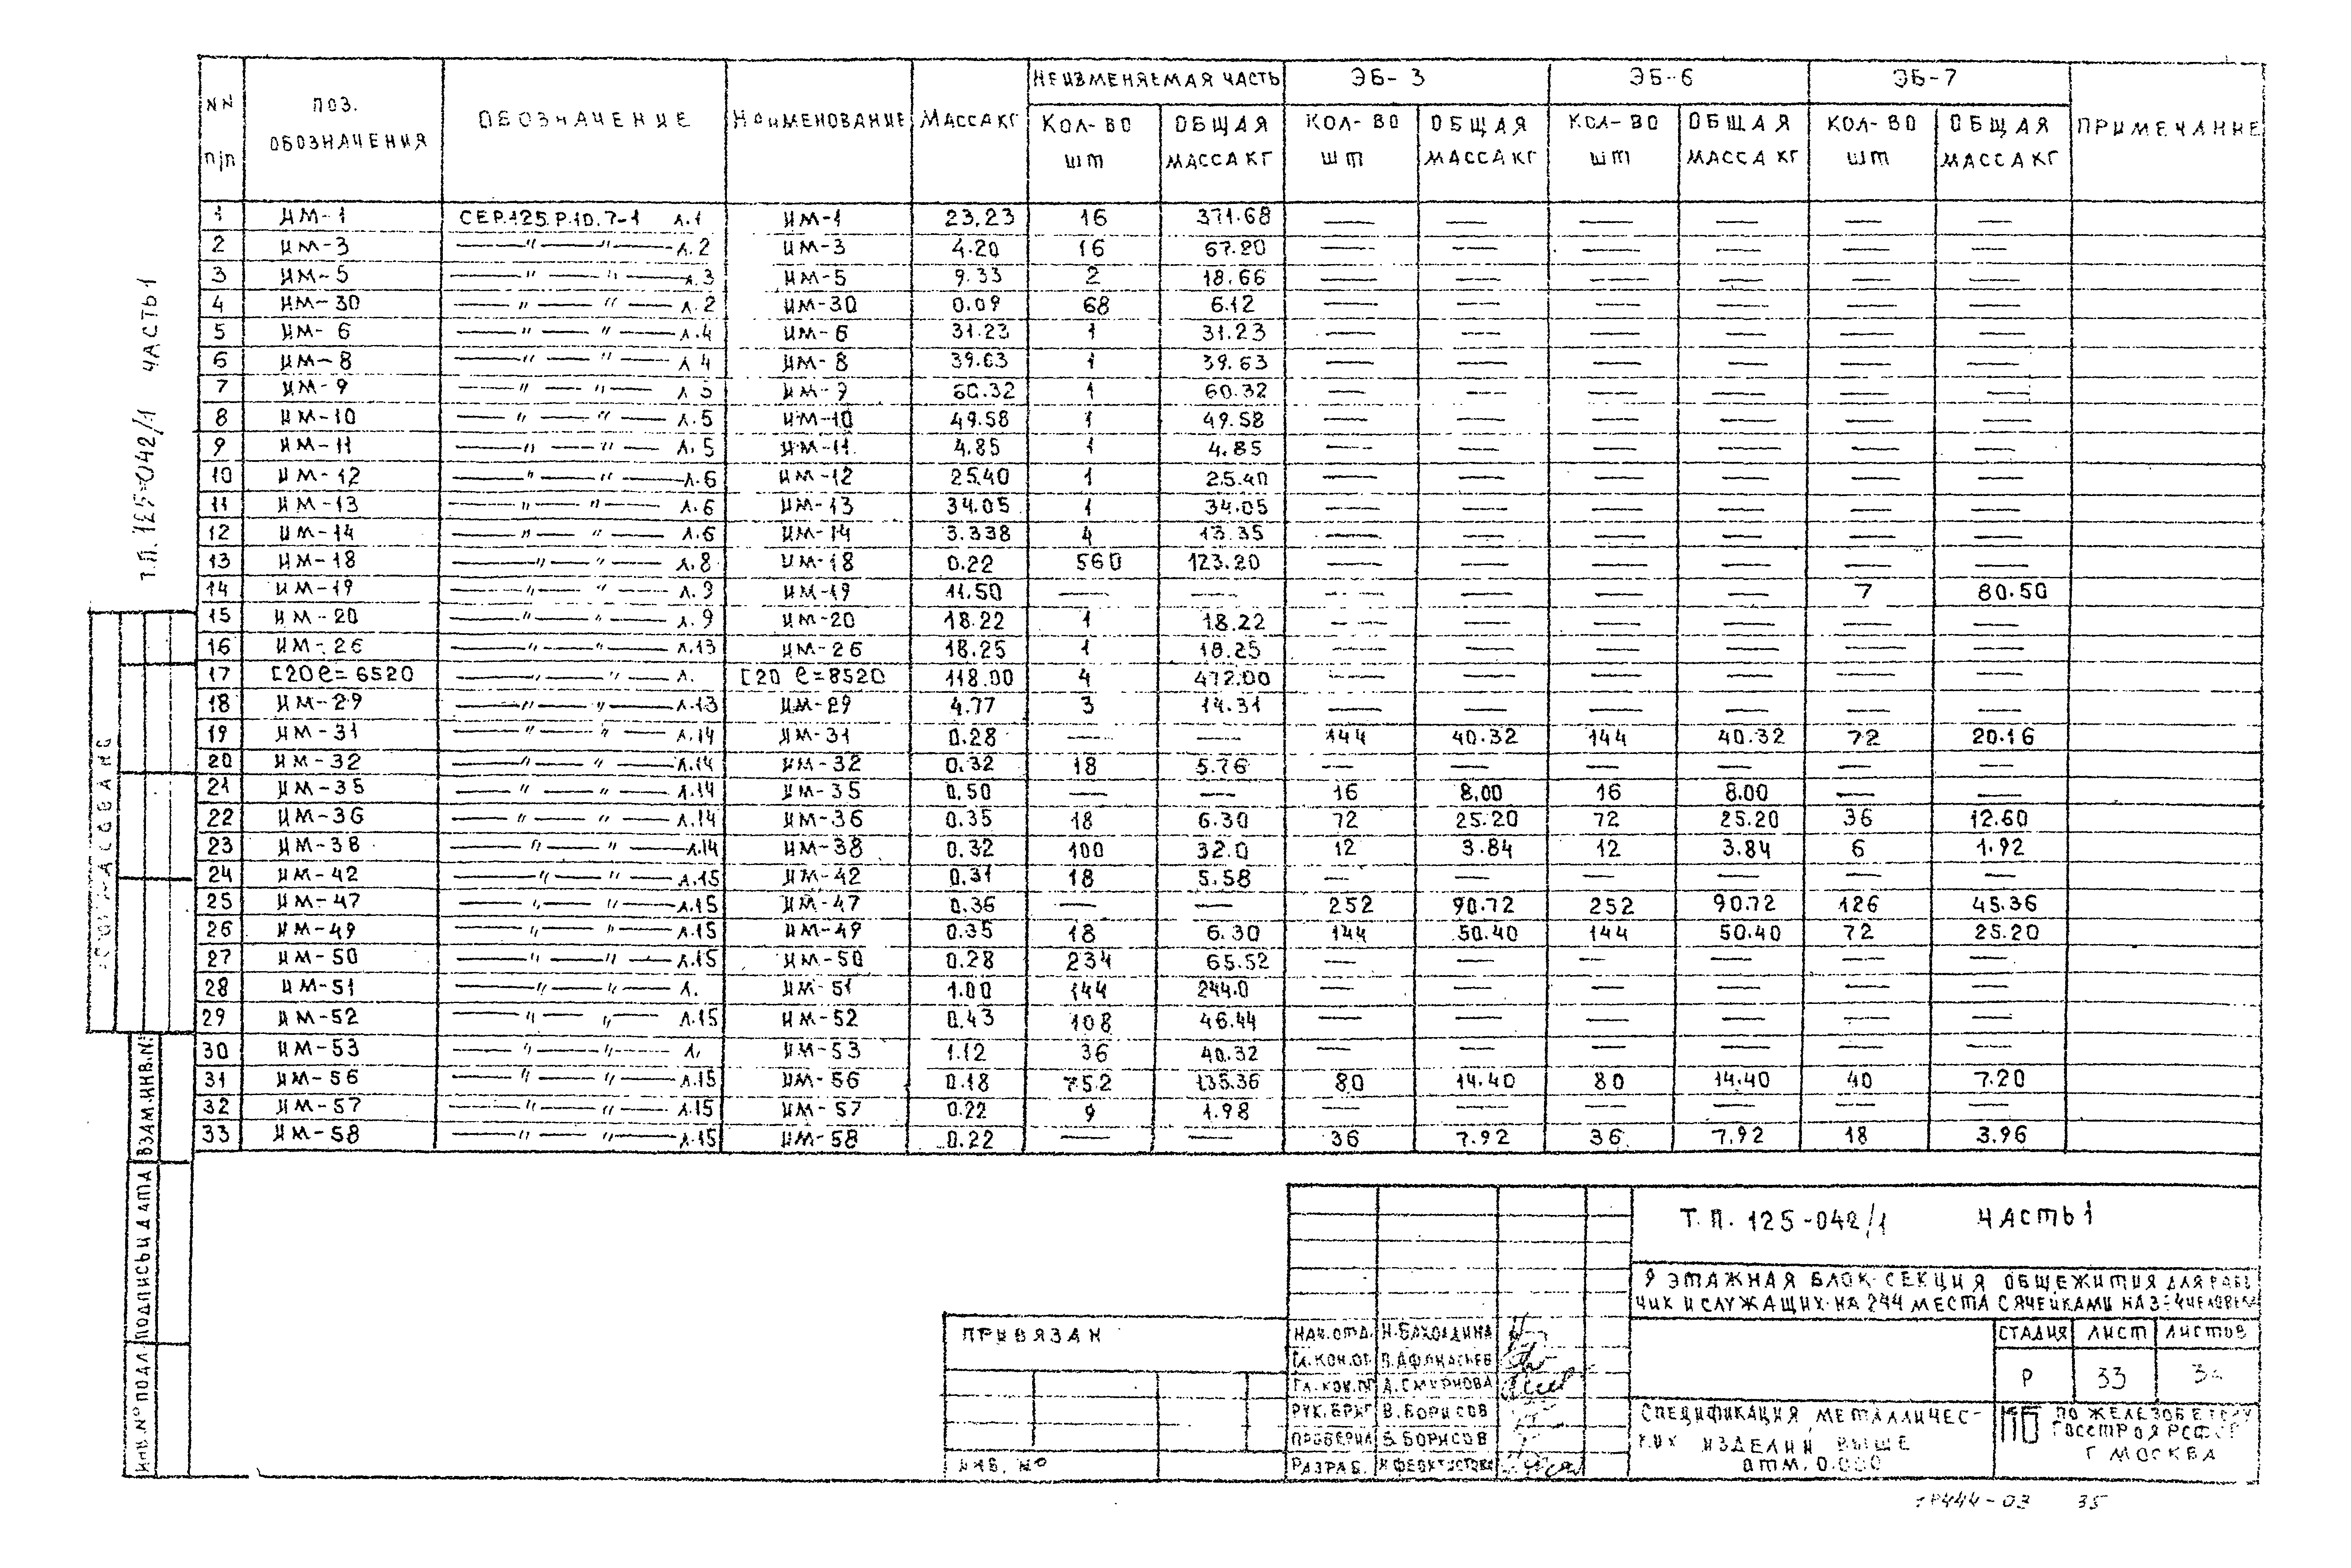 NN п/п ПОЗ. ОБОЗНАЧЕНИЯ ОБОЗНАЧЕНИЕ НАИМЕНОВАНИЕ МАССА КГ НЕИЗМЕНЯЕМАЯ ЧАСТЬ ЭБ-3 ЭБ-6 ЭБ-7 ПРИМЕЧАНИЕ
КОЛ-ВО ШТ ОБЩАЯ МАССА КГ КОЛ-ВО ШТ ОБЩАЯ МАССА КГ КОЛ-ВО ШТ ОБЩАЯ МАССА КГ КОЛ-ВО ШТ ОБЩАЯ МАССА КГ
1 ИМ-1 СЕР.125.Р.10.7-1 Л.1 ИМ-1 23.23 16 371.68 — — — — — —
2 ИМ-3 — " — " — Л.2 ИМ-3 4.20 16 67.20 — — — — — —
3 ИМ-5 — " — " — Л.3 ИМ-5 9.33 2 18.66 — — — — — —
4 ИМ-30 — " — " — Л.2 ИМ-30 0.09 68 6.12 — — — — — —
5 ИМ-6 — " — " — Л.4 ИМ-6 31.23 1 31.23 — — — — — —
6 ИМ-8 — " — " — Л 4 ИМ-8 39.63 1 39.63 — — — — — —
7 ИМ-9 — " — " — Л 5 ИМ-9 60.32 1 60.32 — — — — — —
8 ИМ-10 — " — " — Л.5 ИМ-10 49.58 1 49.58 — — — — — —
9 ИМ-11 — " — " — Л.5 ИМ-11 4.85 1 4.85 — — — — — —
10 ИМ-12 — " — " — Л.6 ИМ-12 25.40 1 25.40 — — — — — —
11 ИМ-13 — " — " — Л.6 ИМ-13 34.05 1 34.05 — — — — — —
12 ИМ-14 — " — " — Л.6 ИМ-14 3.338 4 13.35 — — — — — —
13 ИМ-18 — " — " — Л.8 ИМ-18 0.22 560 123.20 — — — — — —
14 ИМ-19 — " — " — Л.9 ИМ-19 11.50 — — — — — — 7 80.50
15 ИМ-20 — " — " — Л.9 ИМ-20 18.22 1 18.22 — — — — — —
16 ИМ-26 — " — " — Л.13 ИМ-26 18.25 1 18.25 — — — — — —
17 [20 ℓ= 6520 — " — " — Л. [20 ℓ=8520 118.00 4 472.00 — — — — — —
18 ИМ-29 — " — " — Л.13 ИМ-29 4.77 3 14.31 — — — — — —
19 ИМ-31 — " — " — Л.14 ИМ-31 0.28 — — 144 40.32 144 40.32 72 20.16
20 ИМ-32 — " — " — Л.14 ИМ-32 0.32 18 5.76 — — — — — —
21 ИМ-35 — " — " — Л.14 ИМ-35 0.50 — — 16 8.00 16 8.00 — —
22 ИМ-36 — " — " — Л.14 ИМ-36 0.35 18 6.30 72 25.20 72 25.20 36 12.60
23 ИМ-38 — " — " — Л.14 ИМ-38 0.32 100 32.0 12 3.84 12 3.84 6 1.92
24 ИМ-42 — " — " — Л.15 ИМ-42 0.31 18 5.58 — — — — — —
25 ИМ-47 — " — " — Л.15 ИМ-47 0.36 — — 252 90.72 252 90.72 126 45.36
26 ИМ-49 — " — " — Л.15 ИМ-49 0.35 18 6.30 144 50.40 144 50.40 72 25.20
27 ИМ-50 — " — " — Л.15 ИМ-50 0.28 234 65.52 — — — — — —
28 ИМ-51 — " — " — Л. ИМ-51 1.00 144 244.0 — — — — — —
29 ИМ-52 — " — " — Л.15 ИМ-52 0.43 108 46.44 — — — — — —
30 ИМ-53 — " — " — Л. ИМ-53 1.12 36 40.32 — — — — — —
31 ИМ-56 — " — " — Л.15 ИМ-56 0.18 752 135.36 80 14.40 80 14.40 40 7.20
32 ИМ-57 — " — " — Л.15 ИМ-57 0.22 9 1.98 — — — — — —
33 ИМ-58 — " — " — Л.15 ИМ-58 0.22 — — 36 7.92 36 7.92 18 3.96
Т.П. 125-042/1 ЧАСТЬ 1
ВЗАМ.ИНВ.N
ПОДПИСЬ И ДАТА
ИНВ.№ПОДЛ.
Т.П. 125-042/1 ЧАСТЬ 1
9 ЭТАЖНАЯ БЛОК-СЕКЦИЯ ОБЩЕЖИТИЯ ДЛЯ
И СЛУЖАЩИХ НА 244 МЕСТА С ЯЧЕЙКАМИ НА
ПРИВЯЗАН
ИНВ. №
НАЧ.ОТД.
ГЛ.КОН.ОТ В.АФАНАСЬЕВ
А.СМИРНОВА
РУК.БРИГ В.БОРИСОВ
ПРОВЕРИЛ В.БОРИСОВ
РАЗРАБ.
СТАДИЯ ЛИСТ ЛИСТОВ
Р 33
СПЕЦИФИКАЦИЯ МЕТАЛЛИЧЕС-
КИХ ИЗДЕЛИЙ ВЫШЕ
ОТМ. 0.000
ПО ЖЕЛЕЗОБЕТОНУ
ГОССТРОЯ РСФСР
Г МОСКВА
35